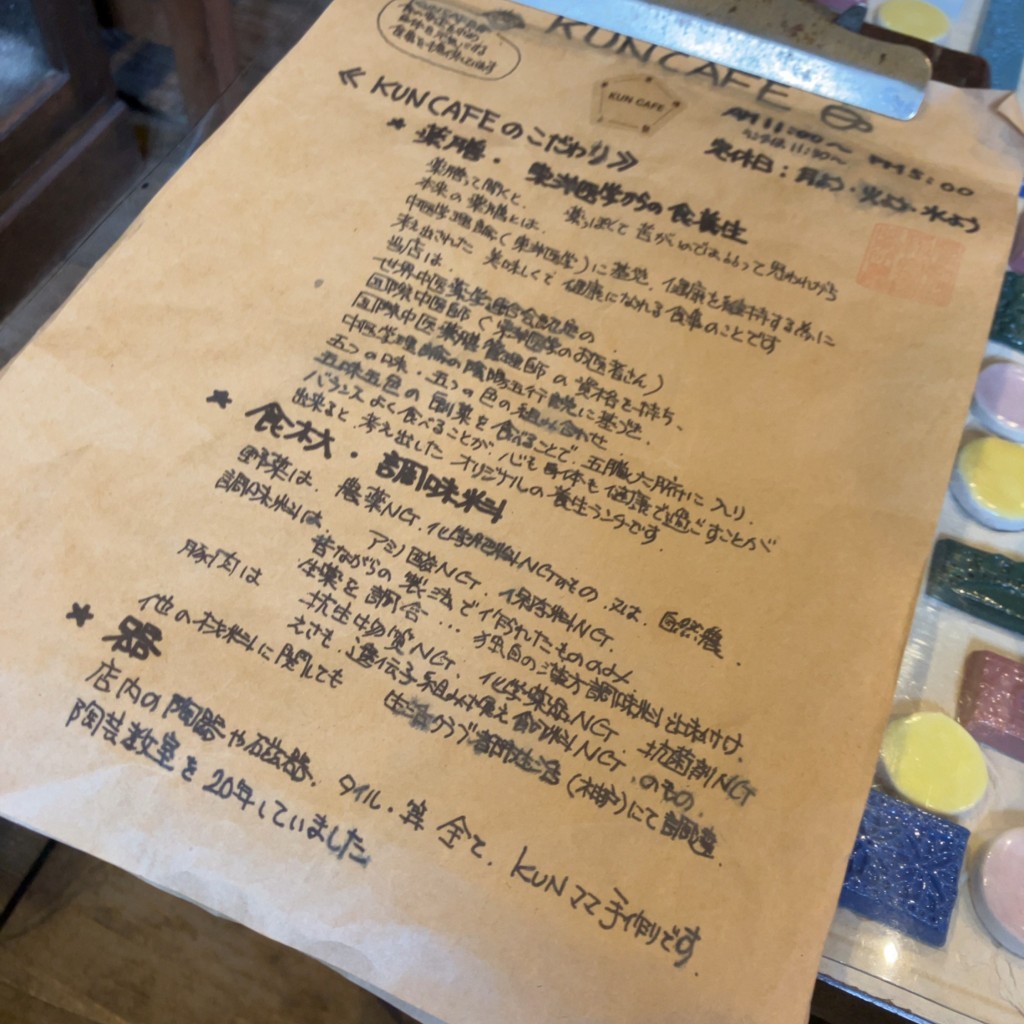 KUN CAFE
KUN CAFE
AM 11:00〜 PM 5:00
定休日：月よう・火よう・水よう
≪ KUN CAFE のこだわり ≫
★ 薬膳・東洋医学からの食養生
薬膳って聞くと、薬っぽくて苦がいのではぁって思われがち
本来の薬膳とは、
中医学理論(東洋医学)に基き、健康を維持する為に
考え出された 美味しくて 健康になれる食事のことです
当店は、
世界中医薬学連合会認定の、
国際中医師(東洋医学のお医者さん)
国際中医薬膳管理師 の資格を持ち、
中医学理論の陰陽五行説に基き、
五つの味・五つの色の組み合わせ
五味五色の副菜を食べることで、五臓六腑に入り、
バランスよく食べることが、心も身体も健康で過ごすことが
出来ると、考え出したオリジナルの養生ランチです。
★ 食材・調味料
野菜は、農薬NG、化学肥料NGのもの 又は 自然農、
調味料は、アミノ酸NG、保存料NG、
昔ながらの製法で作られたもののみ
生薬を調合… 独自の漢方調味料で味付け、
豚肉は 抗生物質NG、化学薬品NG、抗菌剤NG
えさも、遺伝子組み換え飼料NG、のもの、
他の材料に関しても 生活クラブ都市生活(神戸)にて調達、
★ 器
店内の陶器や磁器、タイル・箸 全て、KUNママ手作りです、
陶芸教室を20年していました